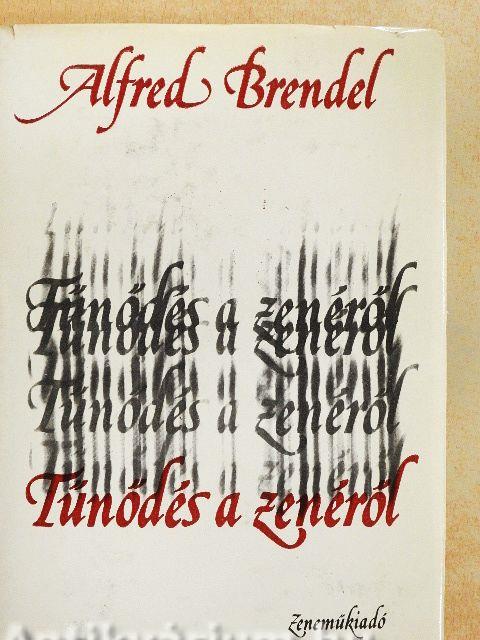 Alfred Brendel
Tűnődés a zenéről
Tűnődés a zenéről
Tűnődés a zenéről
Tűnődés a zenéről
Zeneműkiadó